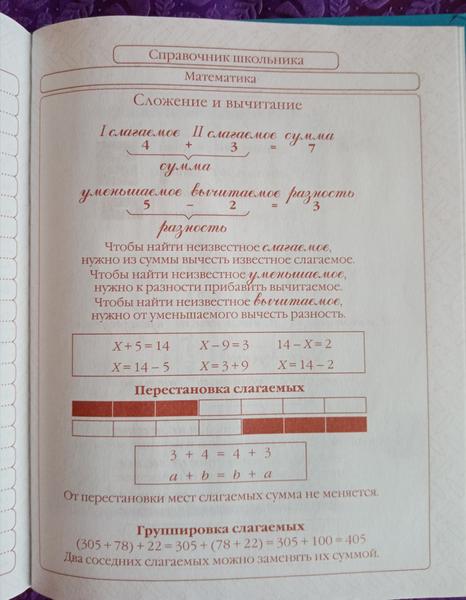 Справочник школьника
Математика
Сложение и вычитание
I слагаемое II слагаемое сумма
4 + 3 = 7
сумма
уменьшаемое вычитаемое разность
5 − 2 = 3
разность
Чтобы найти неизвестное слагаемое,
нужно из суммы вычесть известное слагаемое.
Чтобы найти неизвестное уменьшаемое,
нужно к разности прибавить вычитаемое.
Чтобы найти неизвестное вычитаемое,
нужно от уменьшаемого вычесть разность.
X + 5 = 14 X − 9 = 3 14 − X = 2
X = 14 − 5 X = 3 + 9 X = 14 − 2
Перестановка слагаемых
3 + 4 = 4 + 3
a + b = b + a
От перестановки мест слагаемых сумма не меняется.
Группировка слагаемых
(305 + 78) + 22 = 305 + (78 + 22) = 305 + 100 = 405
Два соседних слагаемых можно заменять их суммой.